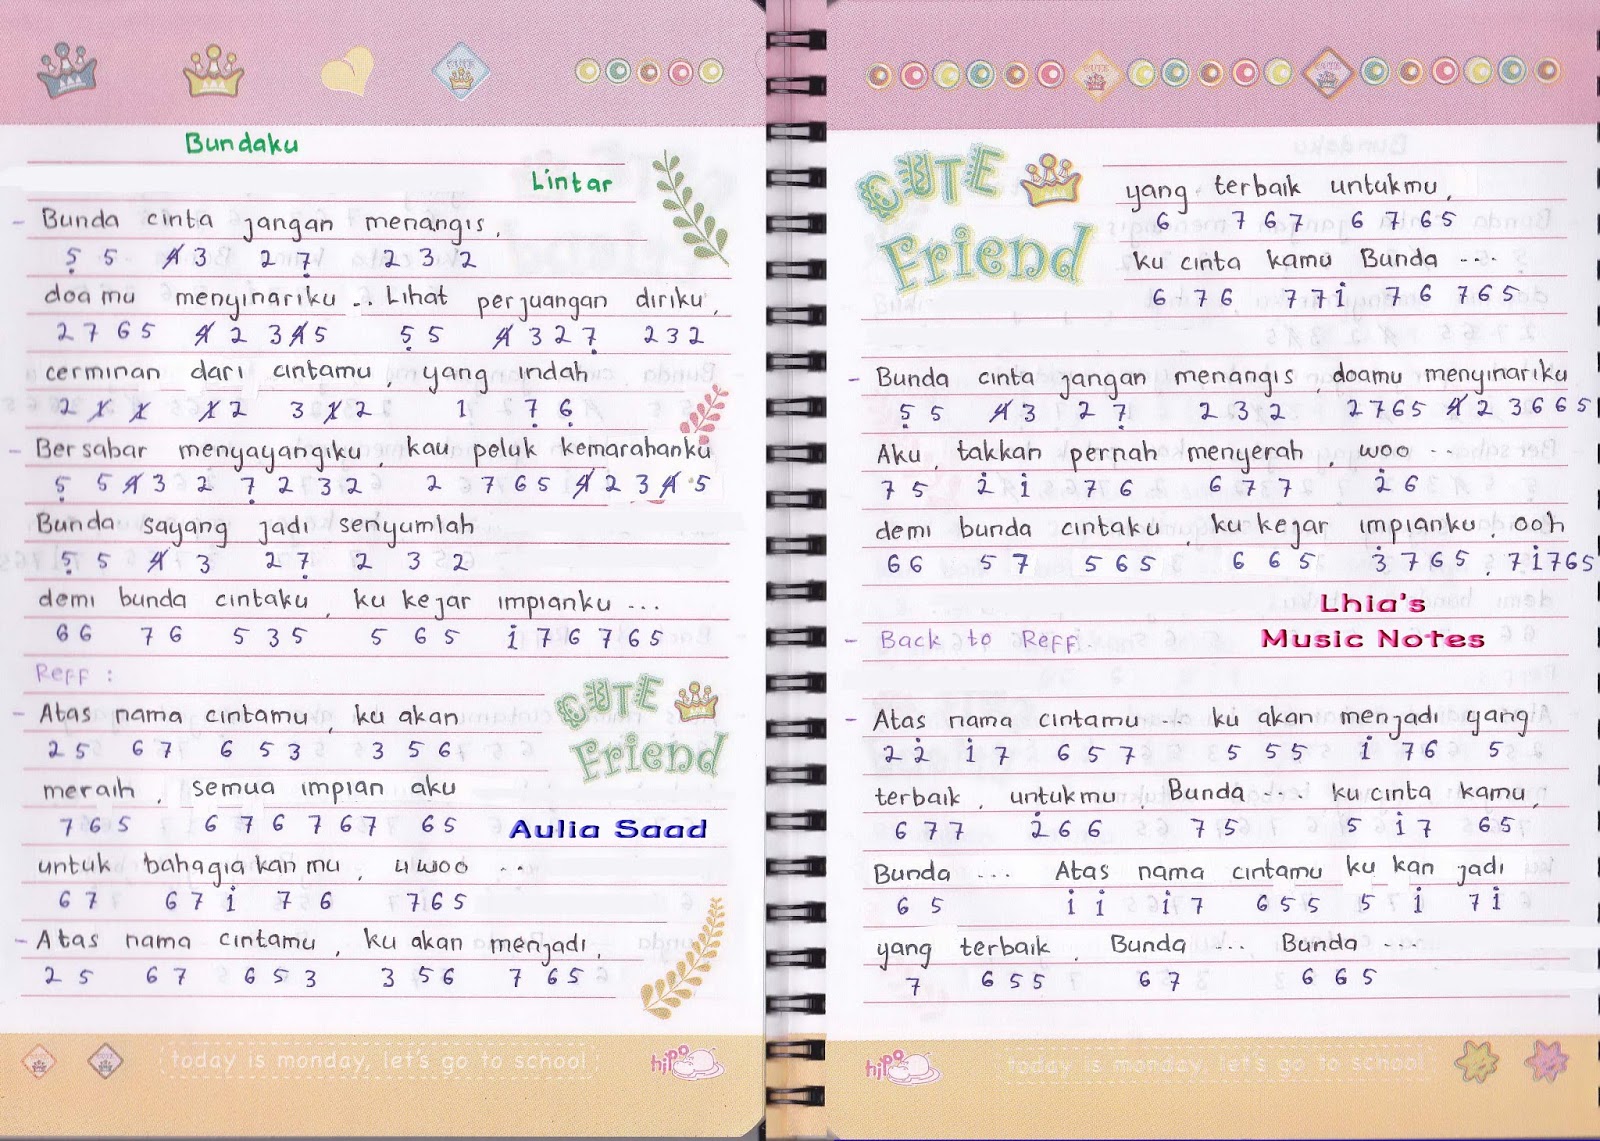 Bundaku
Lintar
- Bunda cinta jangan menangis,
5̣ 5 4̸ 3 2 7̣ 2 3 2
doa mu menyinariku ... Lihat perjuangan diriku,
2 7 6 5 4̸ 2 3 4̸ 5 5̣ 5 4̸ 3 2 7̣ 2 3 2
cerminan dari cintamu, yang indah
2 1̸ 1̸ 1̸ 2 3 1̸ 2 1 7̣ 6̣
- Bersabar menyayangiku, kau peluk kemarahanku
5̣ 5 4̸ 3 2 7̣ 2 3 2 2 7 6 5 4̸ 2 3 4̸ 5
Bunda sayang jadi senyumlah
5̣ 5 4̸ 3 2 7̣ 2 3 2
demi bunda cintaku, ku kejar impianku ...
6 6 7 6 5 3 5 5 6 5 1̇ 7 6 7 6 5
Reff :
- Atas nama cintamu, ku akan
2 5 6 7 6 5 3 3 5 6
meraih, semua impian aku
7 6 5 6 7 6 7 6 7 6 5
Aulia Saad
untuk bahagia kan mu, uwoo ...
6 7 6 7 1̇ 7 6 7 6 5
- Atas nama cintamu, ku akan menjadi,
2 5 6 7 6 5 3 3 5 6 7 6 5
CUTE
Friend
today is monday, let's go to school
hipo
CUTE
Friend
yang terbaik untukmu,
6 7 6 7 6 7 6 5
ku cinta kamu Bunda ...
6 7 6 7 7 1̇ 7 6 7 6 5
- Bunda cinta jangan menangis, doamu menyinariku
5̣ 5 4̸ 3 2 7̣ 2 3 2 2 7 6 5 4̸ 2 3 6 6 5
Aku, takkan pernah menyerah, woo ...
7 5 2̇ 1̇ 7 6 6 7 7 2̇ 6
demi bunda cintaku, ku kejar impianku, ooh
6 6 5 7 5 6 5 6 6 5 3̇ 7 6 5, 7 1̇ 7 6 5
Lhia's
- Back to Reff. Music Notes
- Atas nama cintamu ... ku akan menjadi yang
2 2̇ 1̇ 7 6 5 7 5 5 5 1̇ 7 6 5
terbaik, untukmu, Bunda ... ku cinta kamu,
6 7 7 2̇ 6 6 7 5 5 1̇ 7 6 5
Bunda ... Atas nama cintamu ku kan jadi
6 5 1̇ 1̇ 1̇ 7 6 5 5 5 1̇ 7 1̇
yang terbaik, Bunda ... Bunda ...
7 6 5 5 6 7 6 6 5
hipo
today is monday, let's go to school